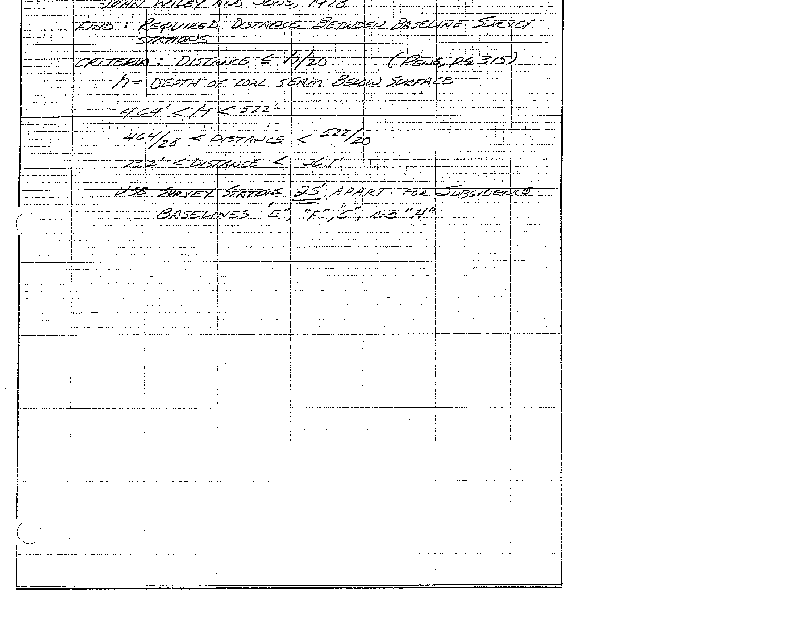 JOHN WILEY AND SONS, 1978
FIND: REQUIRED DISTANCE BETWEEN BASELINE SURVEY
STATIONS
CRITERIA: DISTANCE ≤ h/20 (PENG, PG 315)
h = DEPTH OF COAL SEAM BELOW SURFACE
464' < H < 522'
464/20 < DISTANCE < 522/20
23.2' < DISTANCE < 26.1'
USE SURVEY STATIONS 25' APART FOR SUBSIDENCE
BASELINES "E", "F", "G", AND "H"